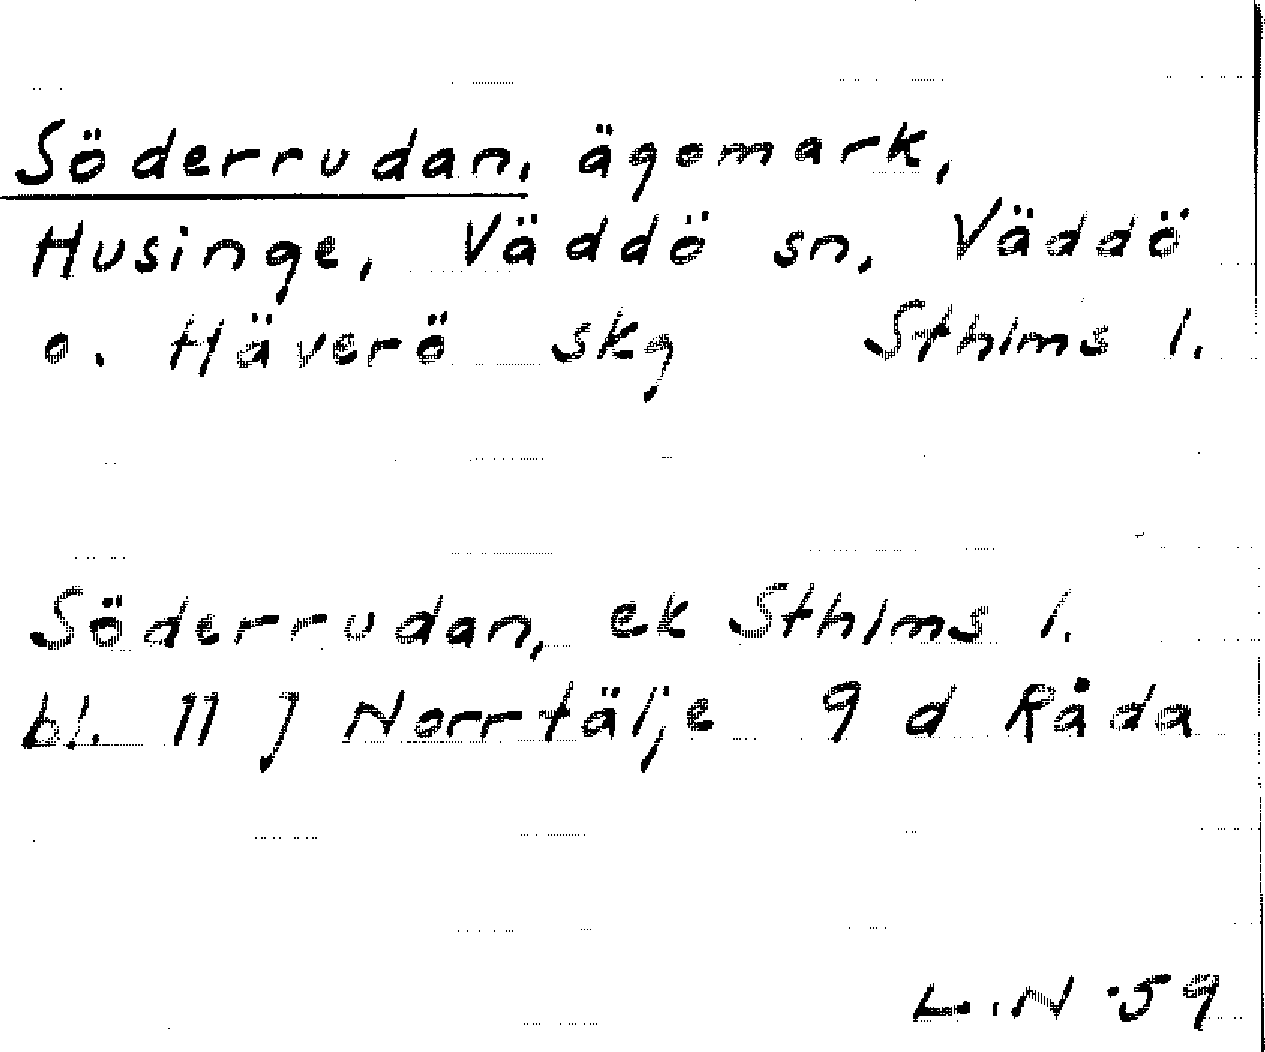 Söderrudan, ägomark,
Husinge, Väddö sn, Väddö
o. Häverö skg Sthlms l.
Söderrudan, ek Sthlms l.
bl. 11 J Norrtälje 9 d Råda
L.N -59